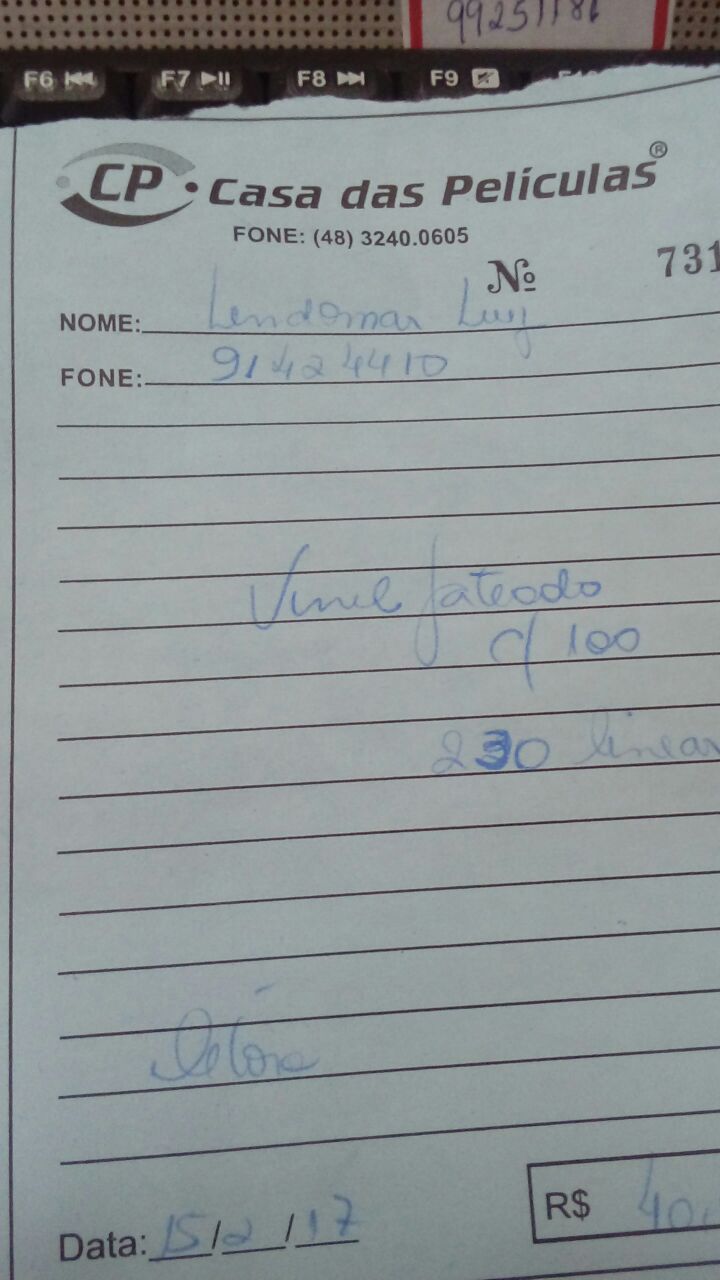 99251186
F6 F7 F8 F9 F10
CP • Casa das Películas®
FONE: (48) 3240.0605
Nº 731
NOME: Lendomar Luiz
FONE: 91424410
Vinil Jateado
c/ 100
230 linear
Data: 15/2/17
R$ 40